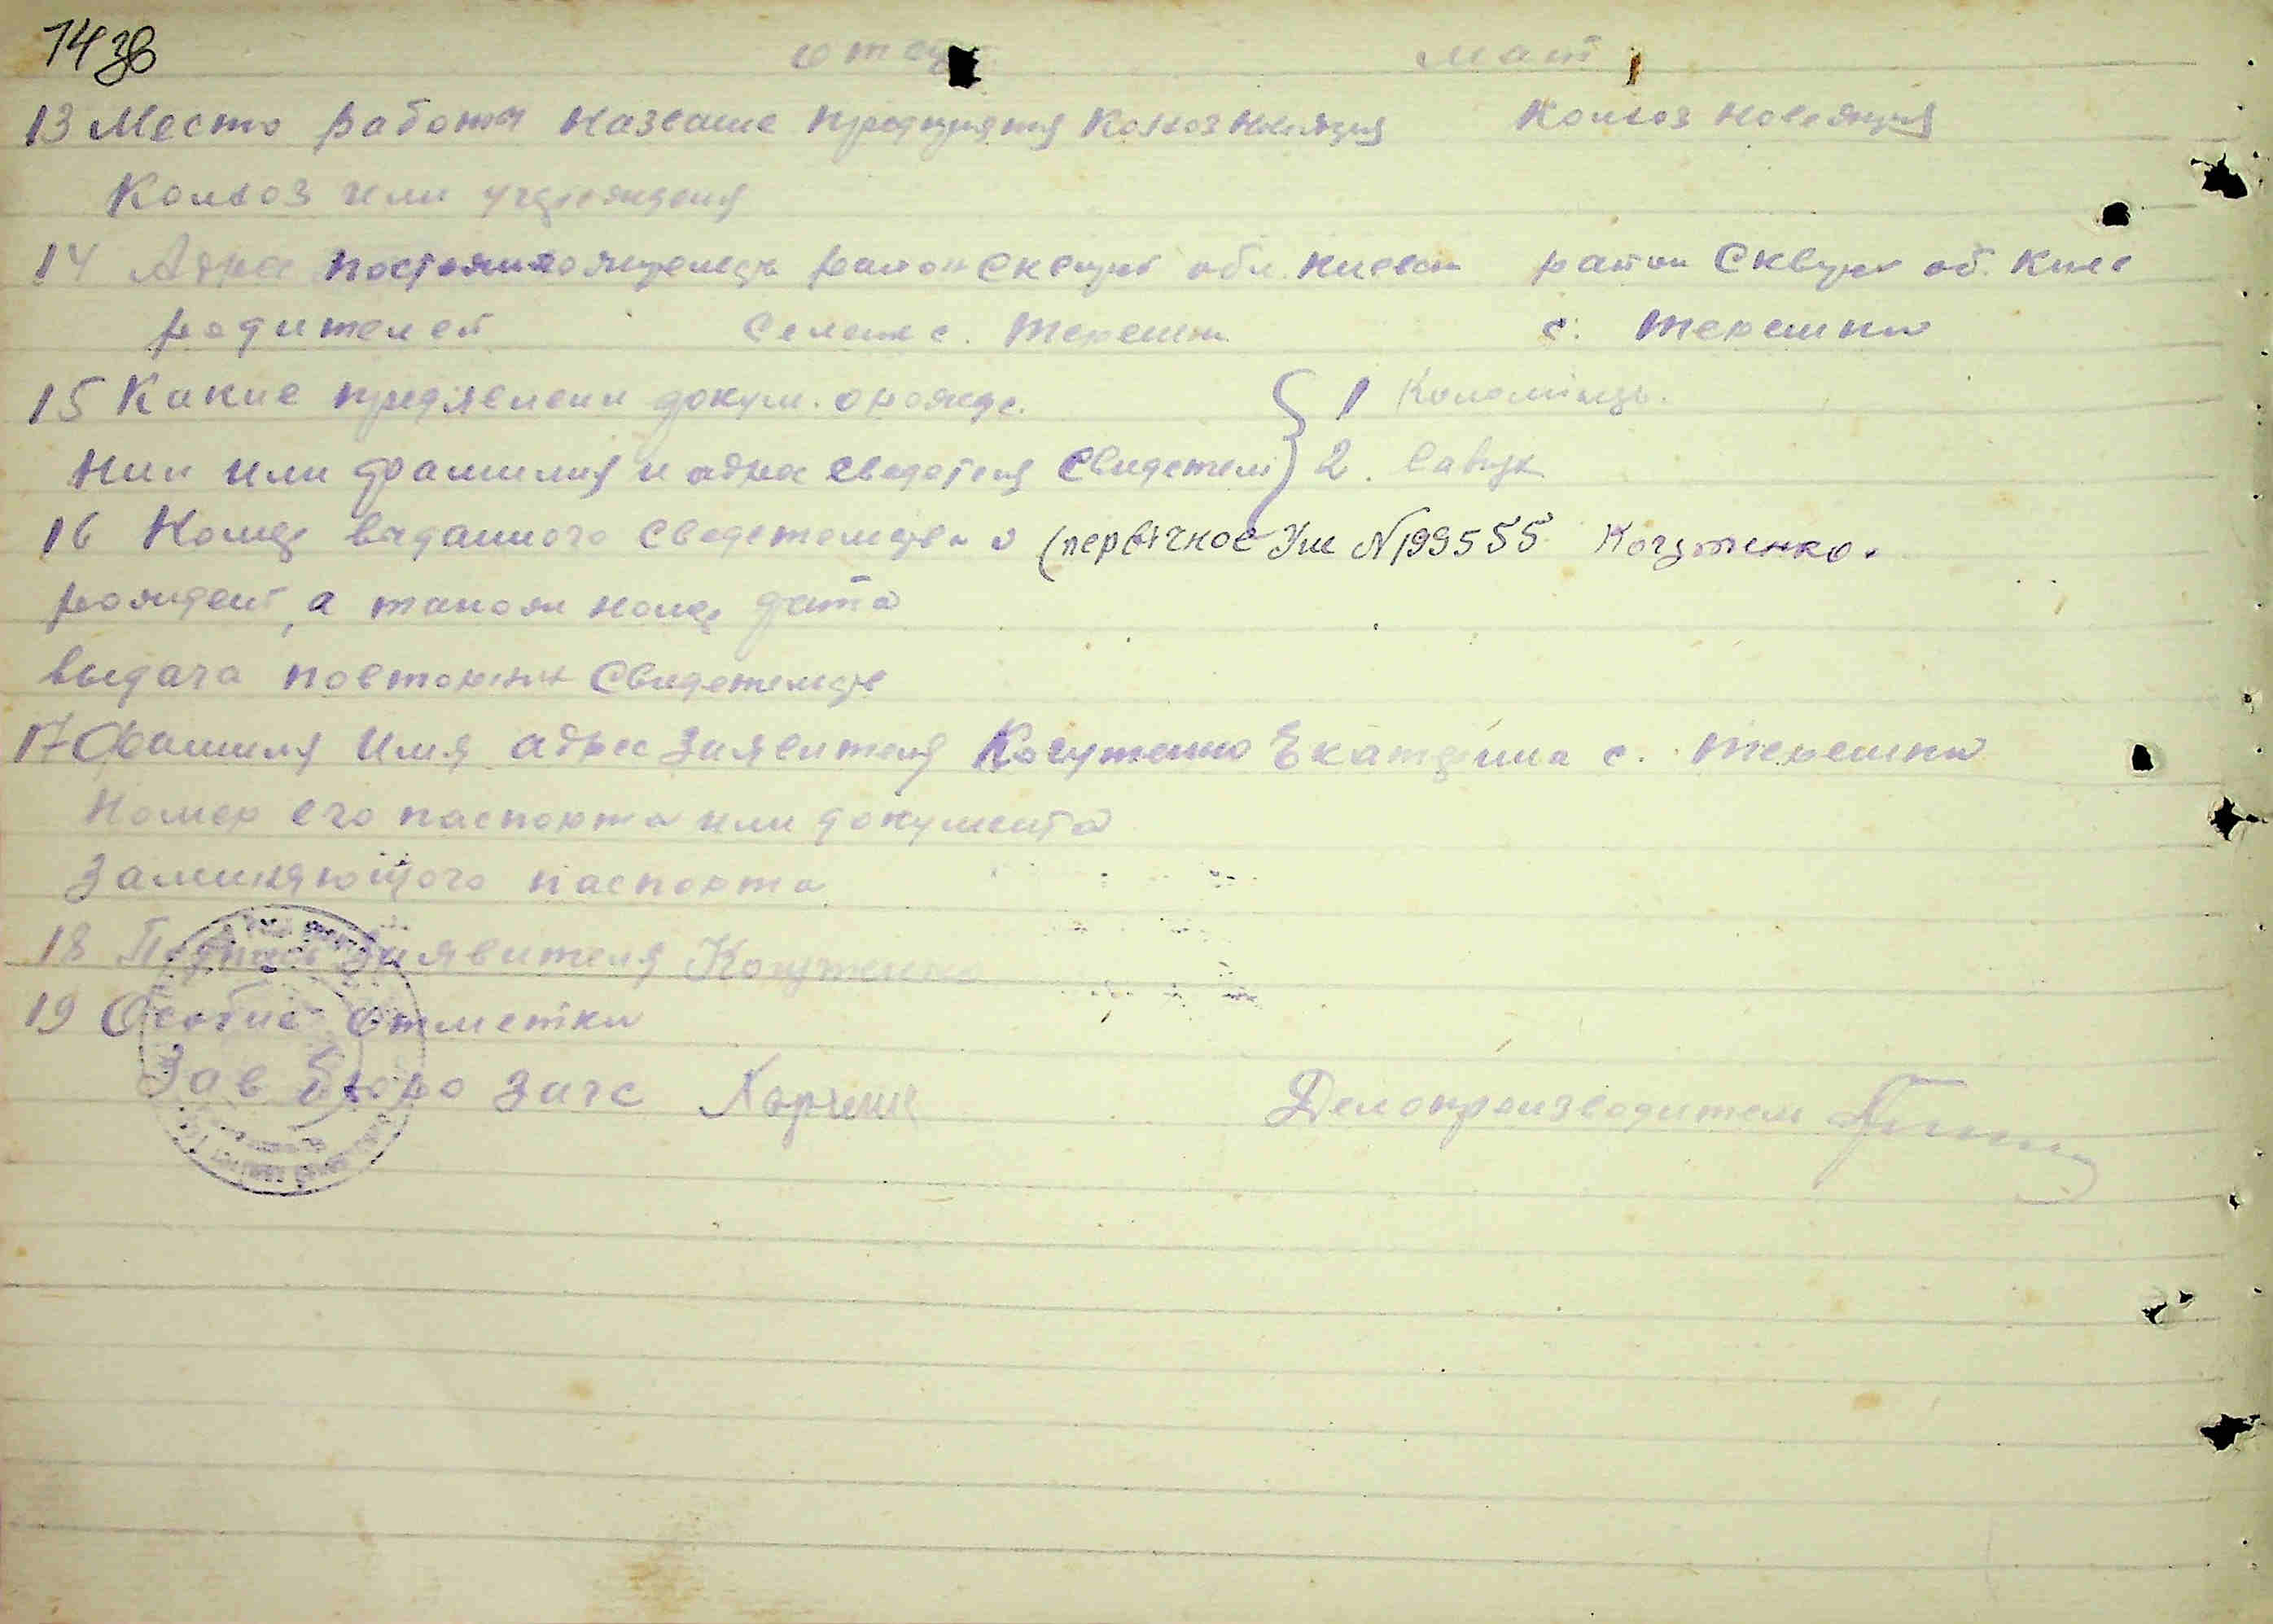 14 зв
отец мат
13 Место работы название предприятя Колхоз Нове життя Колхоз Нове життя
Колхоз или учреждения
14 Адрес постоянного жительць район Сквирс обл. Киевск ратон Сквирс об. Киев
родителей Селение с. Терешки с. Терешки
15 Какие предявлени докум. о рожде. 1 Коломіець.
нии или фамилия и адрес сведетеля Свидетели 2. Савчук
16 Номер виданного Сведетельства о (первичное Уж N 199555 Когутенко.
рождент, а также номер дата
выдача повторних Свидетельств
17 Фамиля Имя адрес Заявителя Когутенко Екатерина с. Терешки
Номер его паспорта или документа
Заминяющого паспорта
18 Подпись Заявителя Когутенко
19 Особие отметки
Зав Бюро Загс Делопроизводитель